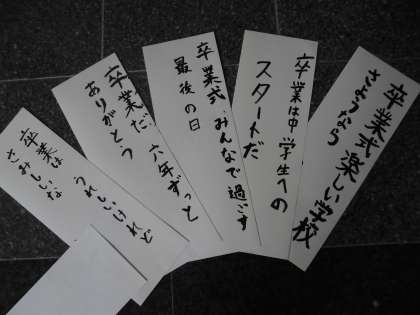 卒業式楽しい学校
さようなら
卒業は中学生への
スタートだ
卒業式 みんなで過ごす
最後の日
卒業だ 六年ずっと
ありがとう
卒業は うれしいけれど
さみしいな